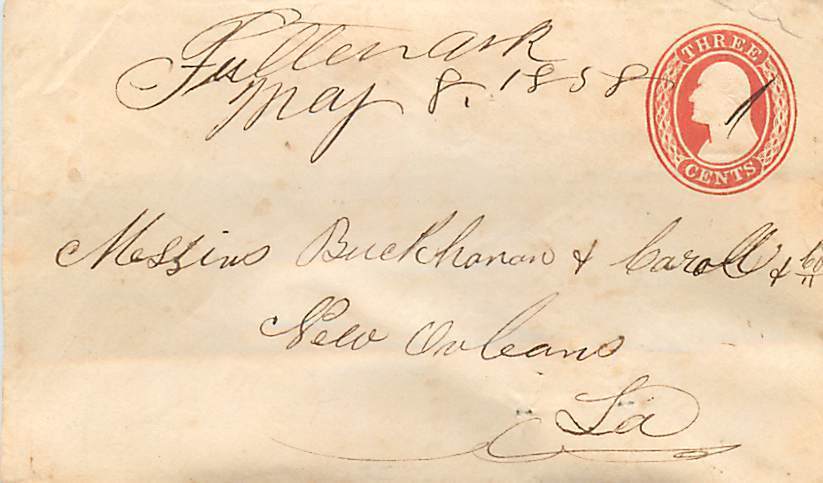 Fulton Ark
May 8, 1858
THREE
CENTS
Messires Buckhanan & Caroll & Co
New Orleans
La